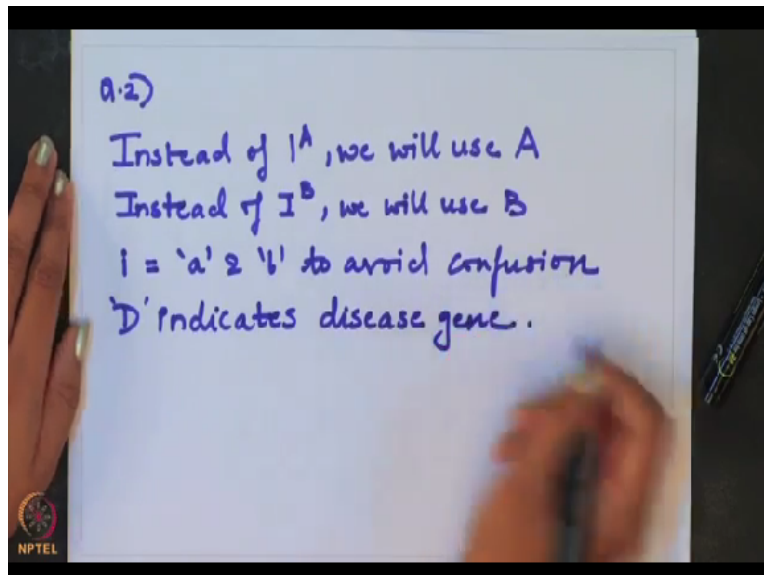 Q.2)
Instead of I^A, we will use A
Instead of I^B, we will use B
i = 'a' & 'b' to avoid confusion
'D' indicates disease gene.
NPTEL